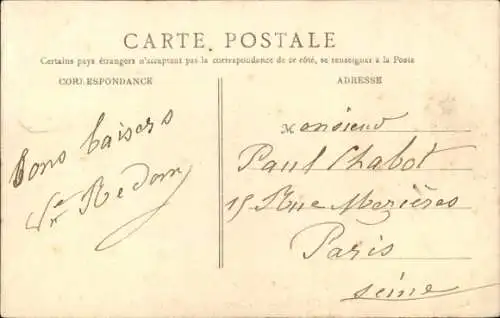 CARTE POSTALE
Certains pays étrangers n'acceptant pas la correspondance de ce côté, se renseigner à la Poste
CORRESPONDANCE
ADRESSE
Bons baisers
Redon
Monsieur
Paul Chabot
15 Rue Mezières
Paris
Seine